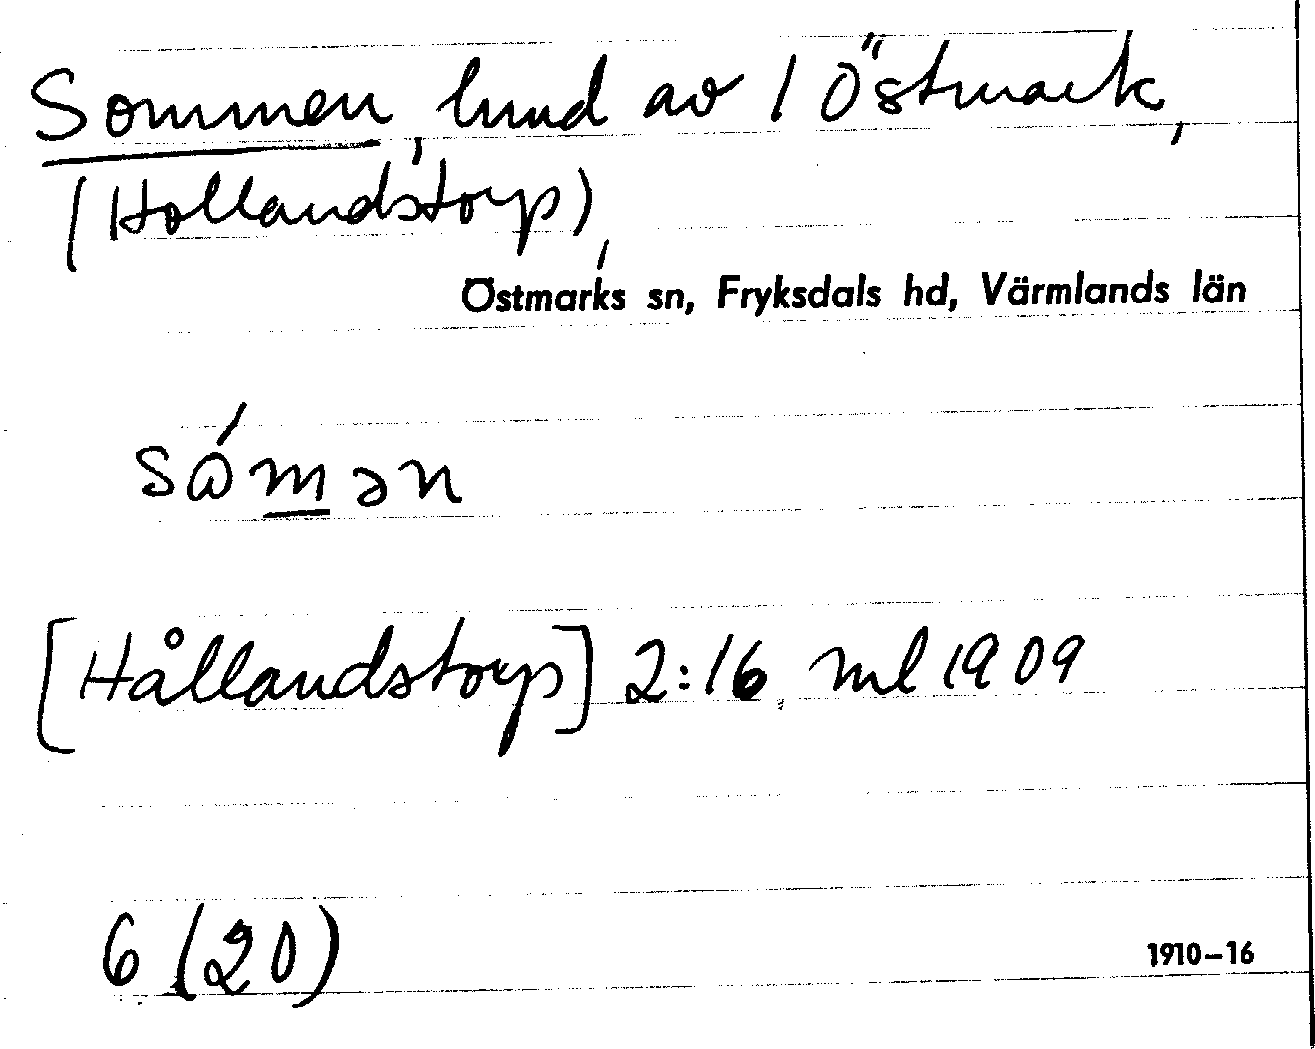 Sommen, lund av 1 Östmark,
(Hollandstorp),
Östmarks sn, Fryksdals hd, Värmlands län
sώmən
[Hållandstorp] 2:16, ml 1909
6 (20)
1910–16